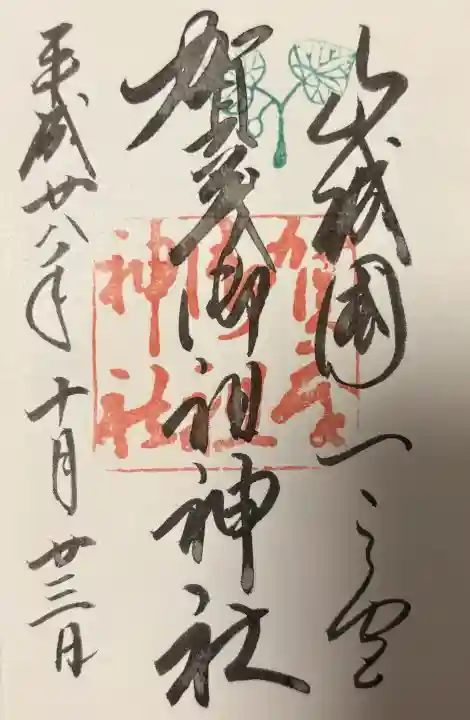 山城國一之宮
賀茂御祖神社
平成廿八年十月廿三日
賀茂
御祖
神社